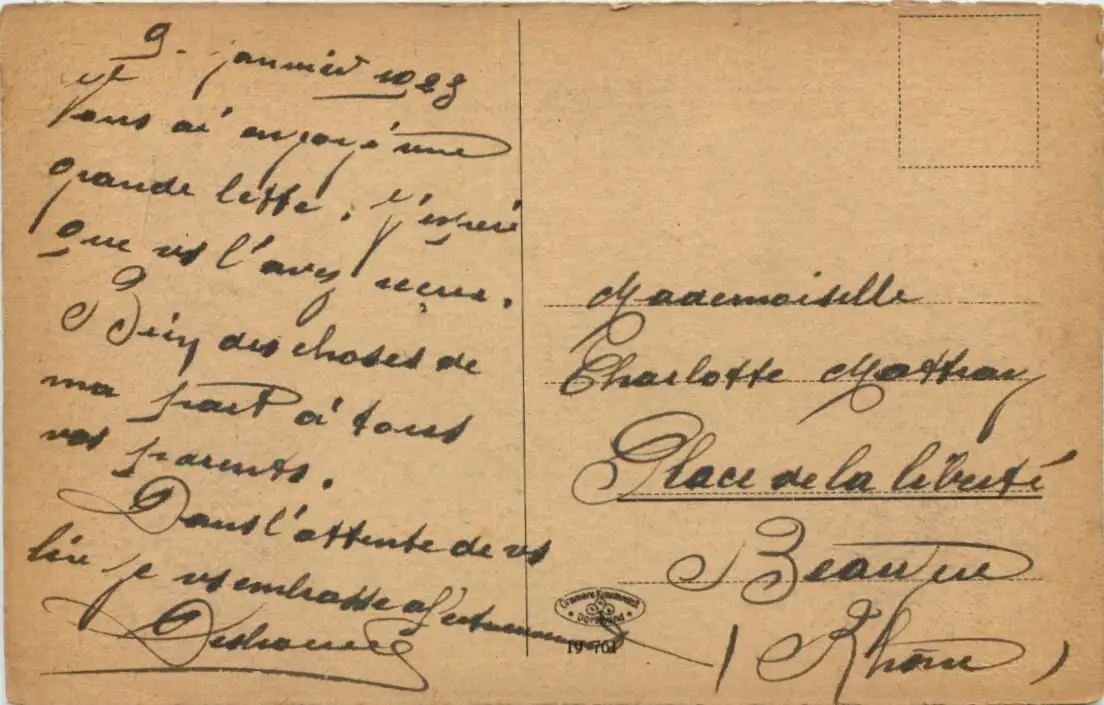 9. janvier 1923
Je
Vous ai envoyé une
grande lettre. J'espère
que vs l'avez reçue.
Bien des choses de
ma part à tous
vos parents.
Dans l'attente de vs
lire je vs embrasse affectueusement
Mademoiselle
Charlotte Mattray
Place de la liberté
Beaujeu
(Rhône)
Cramers Kunstanstalt
Dortmund
19 761